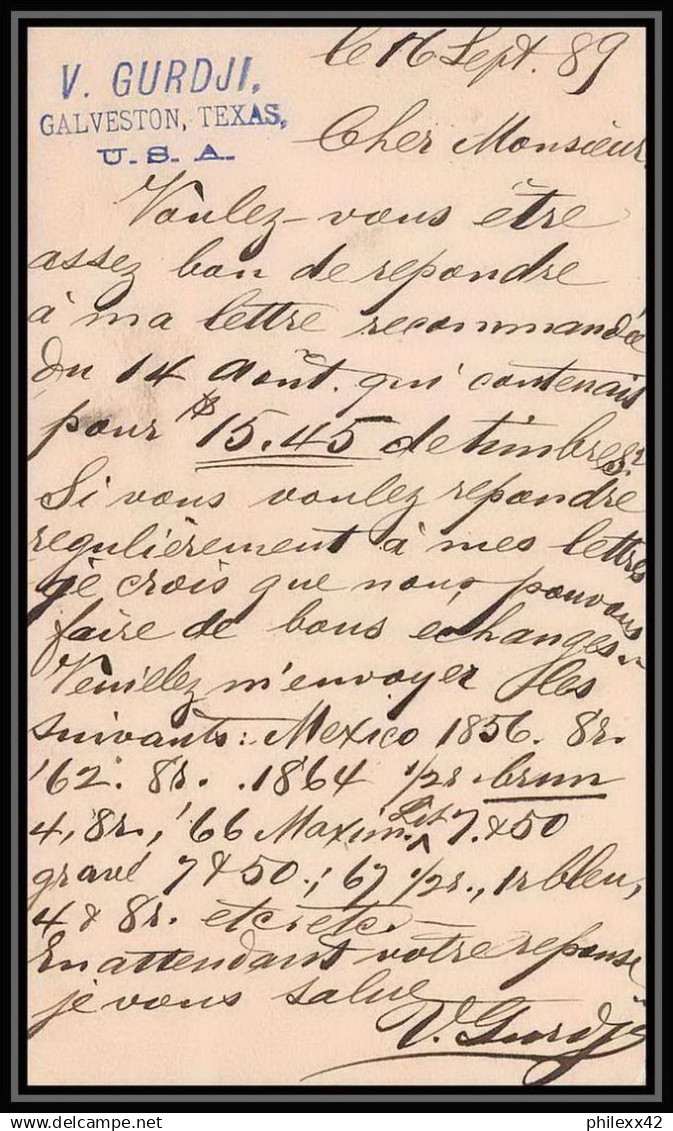 le 16 Sept. 89
V. GURDJI,
GALVESTON, TEXAS,
U.S.A.
Cher Monsieur,
Voulez-vous être
assez bon de repondre
à ma lettre recommandée
du 14 Août. qui contenais
pour $15.45 de timbres.
Si vous voulez repondre
regulièrement à mes lettres
je crois que nous pouvons
faire de bons échanges.
Veuillez m'envoyer les
suivants: Mexico 1856. 8r.
'62. 8r. .1864 1/2r. brun
4, 8r., '66 Maxim. Lit. 7. & 50
gravé 7 & 50.; 67 1/2r., 1r bleu,
4 & 8r. etc. etc. —
En attendant votre reponse
je vous salue
V. Gurdji
philexx42